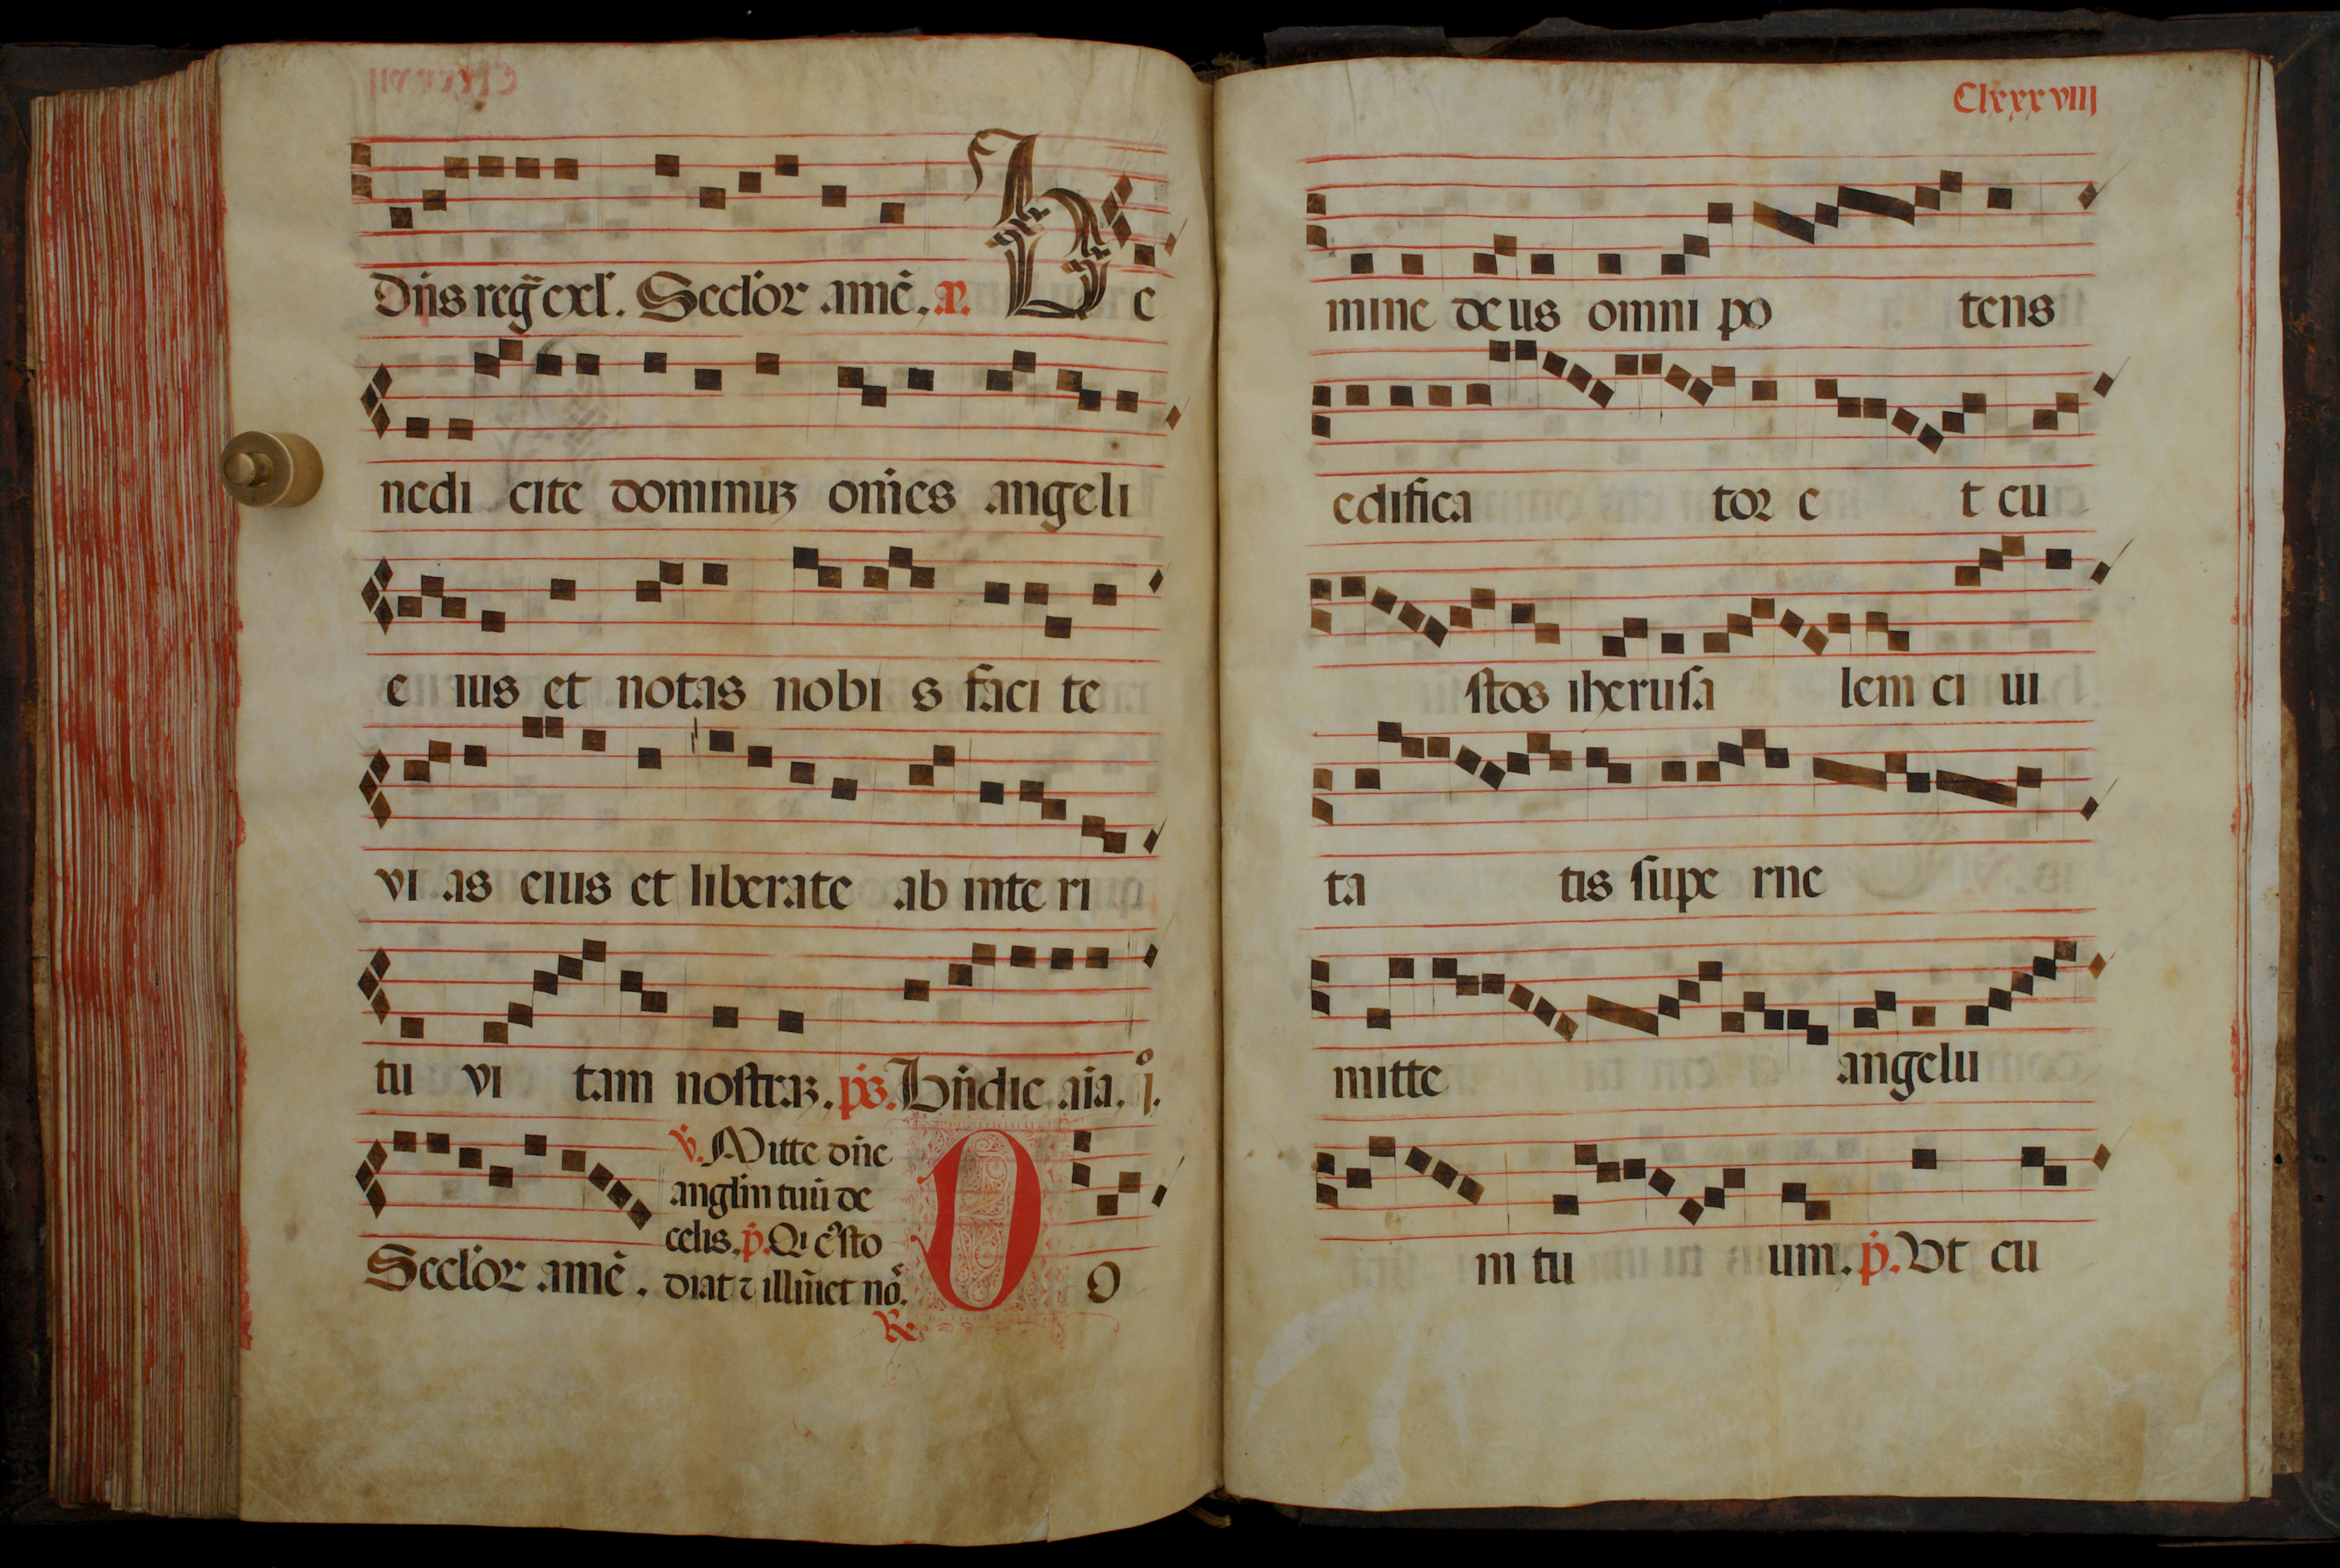 Dñs reg̃ exl. Secl'or amẽ. a. Be
nedi cite dominuʒ om̃es angeli
e ius et notas nobi s faci te
vi as eius et liberate ab inte ri
tu vi tam nostraʒ. ps. Bñdic aĩa. j.º
Secl'or amẽ. ℣. Mitte dñe
angl'm tuũ de
celis. p̃. Qi cº̃sto
diat ⁊ illũet nõ.
℟
O O
Clxxxviiij
mine deus omni po tens
edifica tor e t cu
stos iherusa lem ci ui
ta tis supe rne
mitte angelu
m tu um. p̃. Vt cu